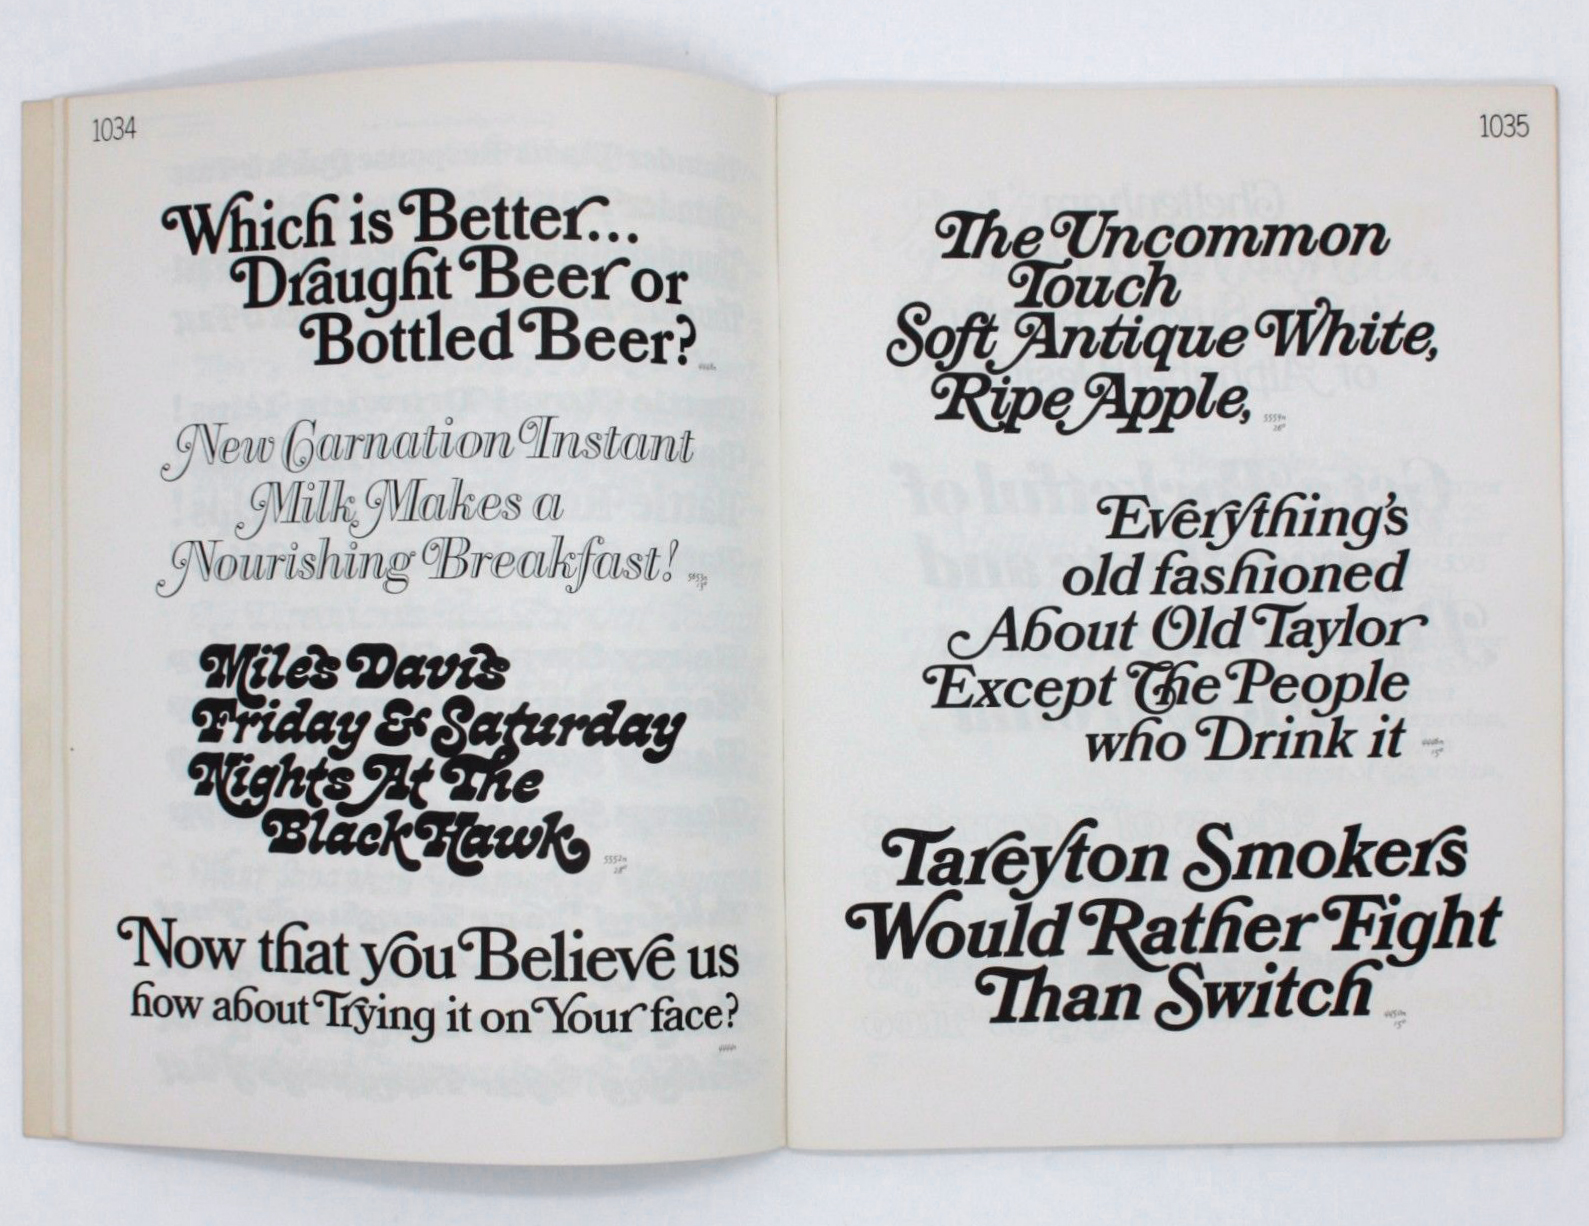 1034
Which is Better...
Draught Beer or
Bottled Beer?
New Carnation Instant
Milk Makes a
Nourishing Breakfast!
Miles Davis
Friday & Saturday
Nights At The
Black Hawk
5552n
28°
Now that you Believe us
how about Trying it on Your face?
1035
The Uncommon
Touch
Soft Antique White,
Ripe Apple,
5559n
28°
Everything's
old fashioned
About Old Taylor
Except The People
who Drink it
15°
Tareyton Smokers
Would Rather Fight
Than Switch
15°